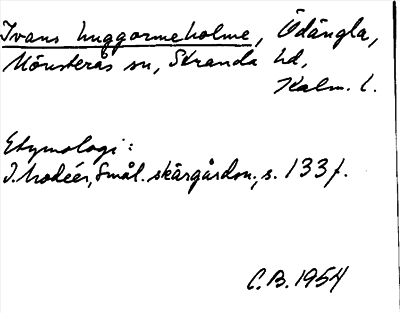 Ivans huggormeholme, Ödängla,
Mönsterås sn, Stranda hd,
Kalm. l.
Etymologi:
I. Modéer, Smål. skärgården, s. 133f.
C.B. 1954